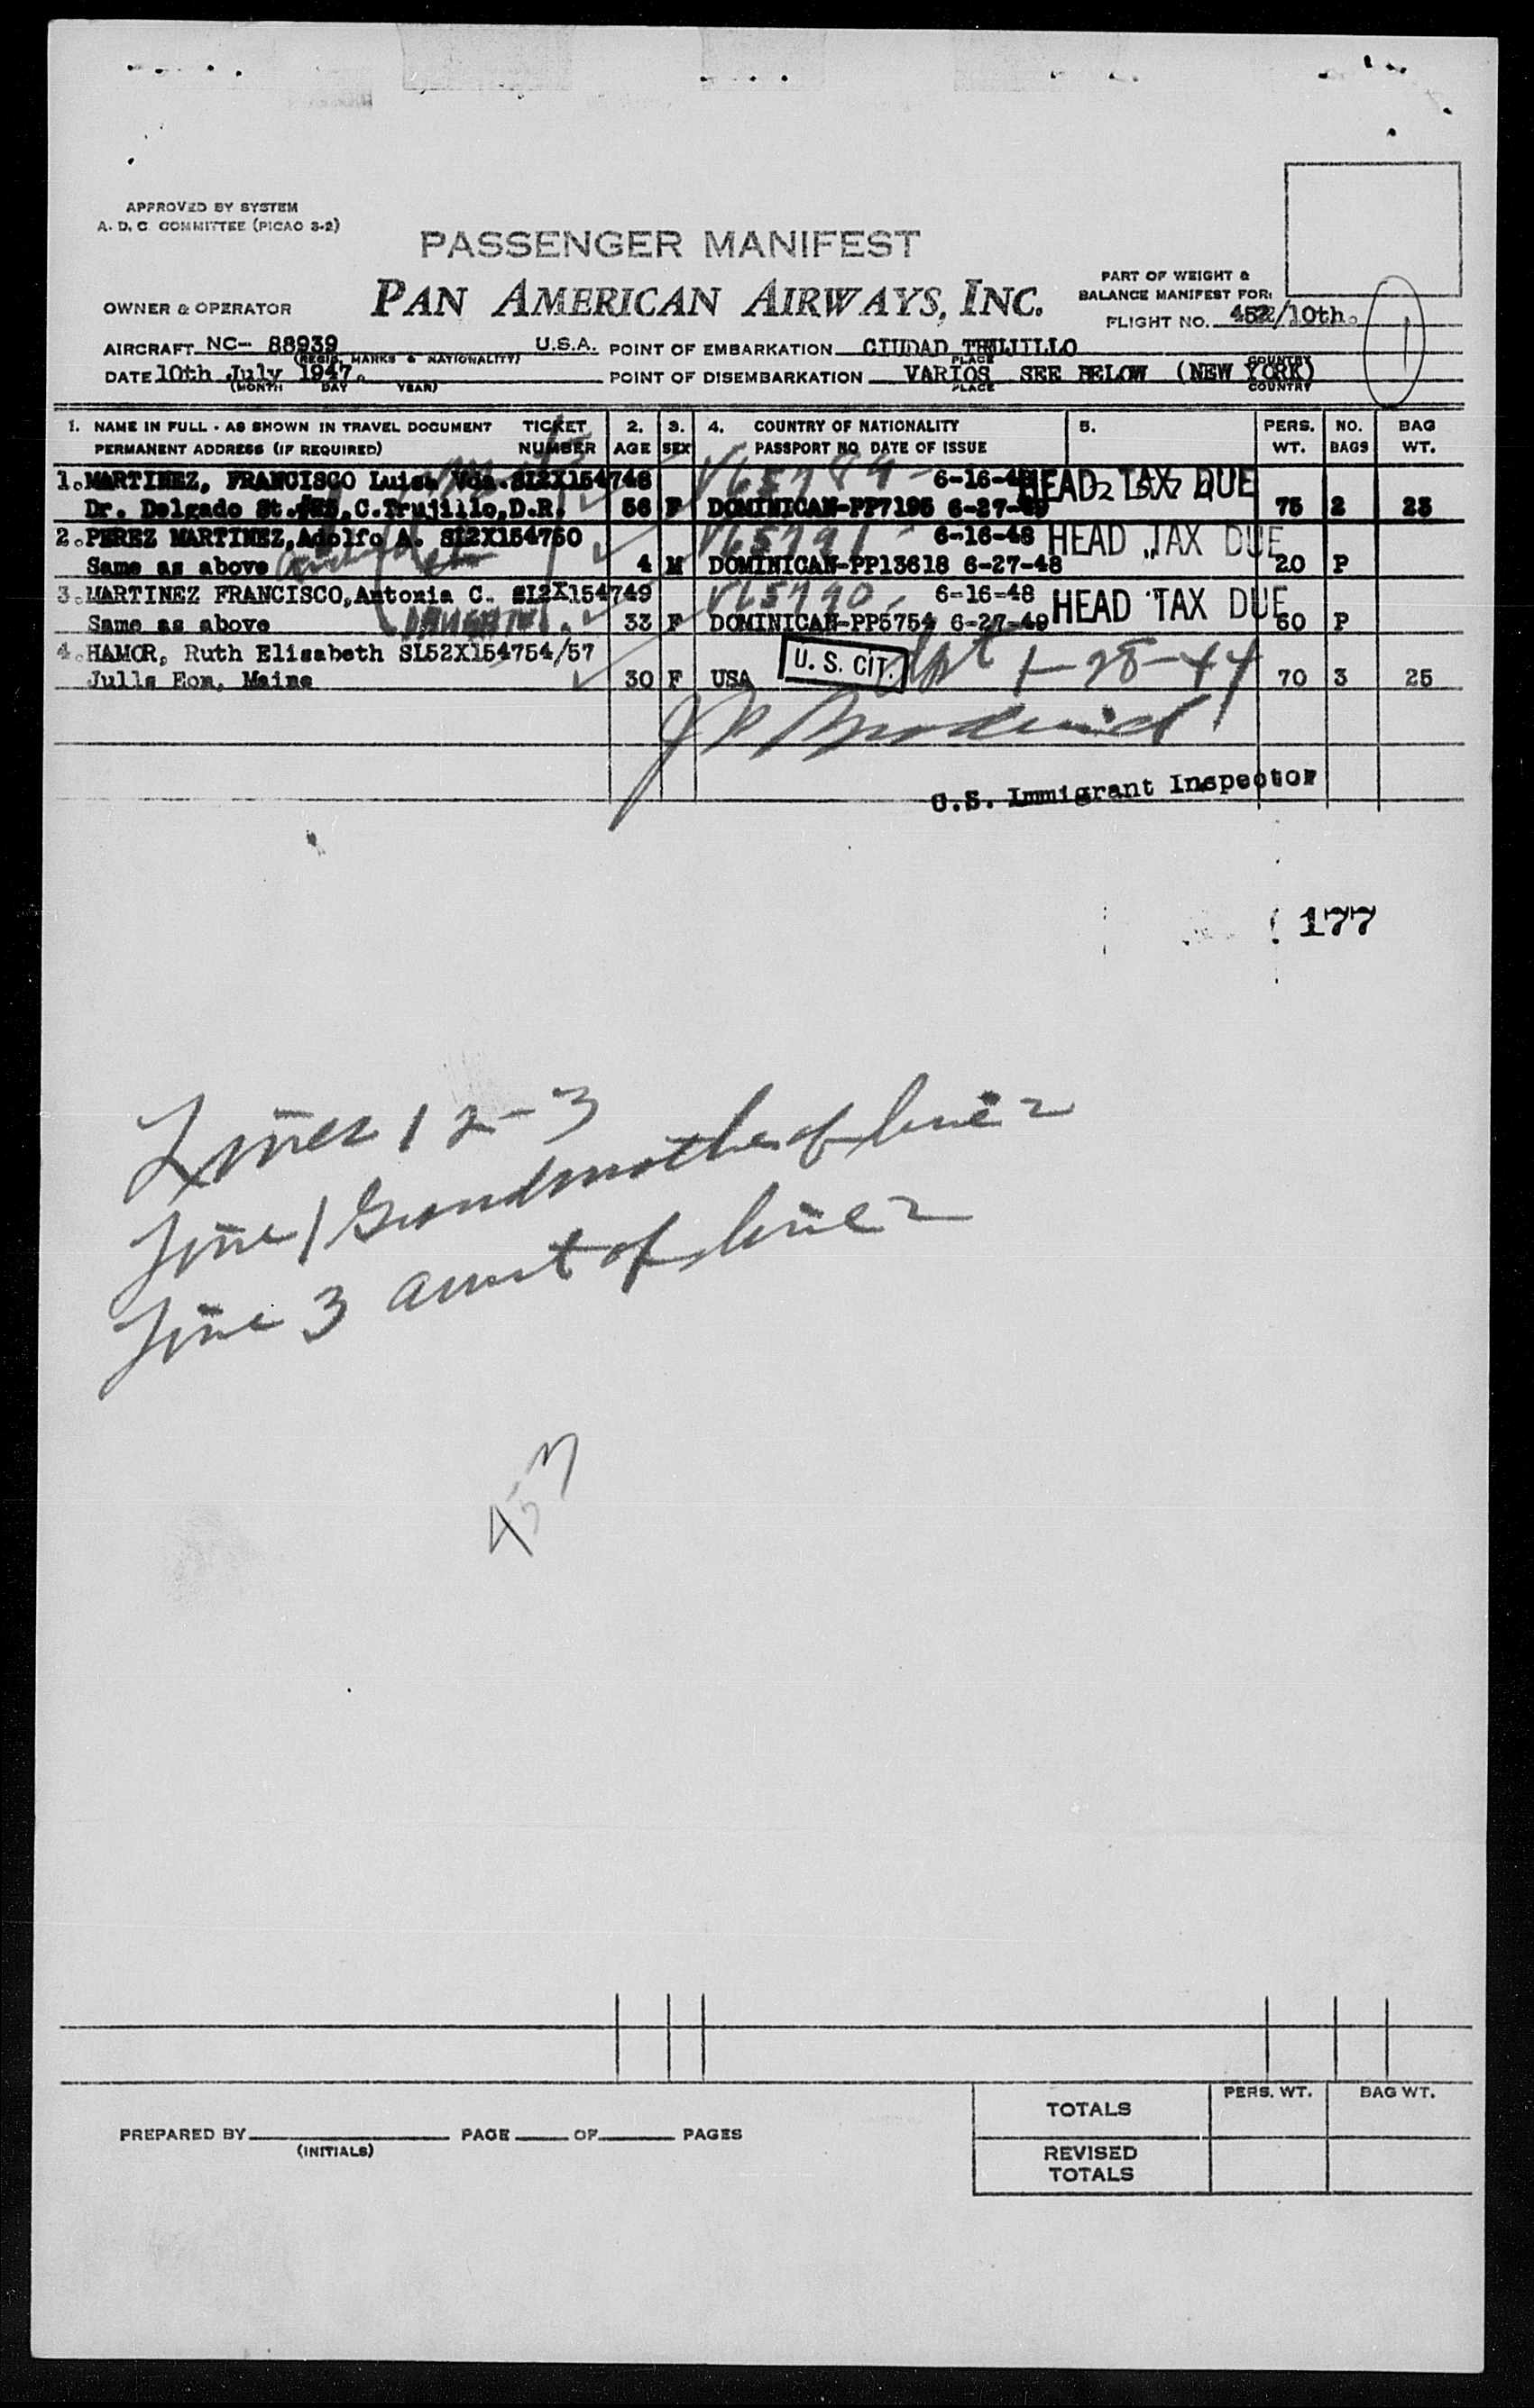 APPROVED BY SYSTEM
A. D. C. COMMITTEE (PICAO 3-2)
PASSENGER MANIFEST
PART OF WEIGHT &
BALANCE MANIFEST FOR:
OWNER & OPERATOR
PAN AMERICAN AIRWAYS, INC.
FLIGHT NO. 452/10th.
AIRCRAFT NC- 88939 U.S.A. POINT OF EMBARKATION CIUDAD TRUJILLO
(REGIS. MARKS & NATIONALITY) PLACE COUNTRY
DATE 10th July 1947. POINT OF DISEMBARKATION VARIOS SEE BELOW (NEW YORK)
(MONTH DAY YEAR) PLACE COUNTRY
1. NAME IN FULL - AS SHOWN IN TRAVEL DOCUMENT TICKET 2. 3. 4. COUNTRY OF NATIONALITY 5. PERS. NO. BAG
PERMANENT ADDRESS (IF REQUIRED) NUMBER AGE SEX PASSPORT NO. DATE OF ISSUE WT. BAGS WT.
1. MARTINEZ, FRANCISCO Luisa Vda. SI2X154748 V65789 6-16-48 HEAD TAX DUE
Dr. Delgado St. C.Trujillo,D.R. 56 F DOMINICAN-PP7195 6-27-49 75 2 23
2. PEREZ MARTINEZ, Adolfo A. SI2X154750 V65791 6-16-48 HEAD TAX DUE
Same as above 4 M DOMINICAN-PP13618 6-27-48 20 P
3. MARTINEZ FRANCISCO, Antonia C. SI2X154749 V65790 6-16-48 HEAD TAX DUE
Same as above DAUGHTER 33 F DOMINICAN-PP5754 6-27-49 60 P
4. HAMOR, Ruth Elisabeth SI52X154754/57 U. S. CIT.
Julls Eom, Maine 30 F USA 1-28-44 70 3 25
U.S. Immigrant Inspector
177
Lines 1 2-3
Line 1 Grandmother of line 2
Line 3 aunt of line 2
457
TOTALS PERS. WT. BAG WT.
PREPARED BY PAGE OF PAGES
(INITIALS)
REVISED
TOTALS